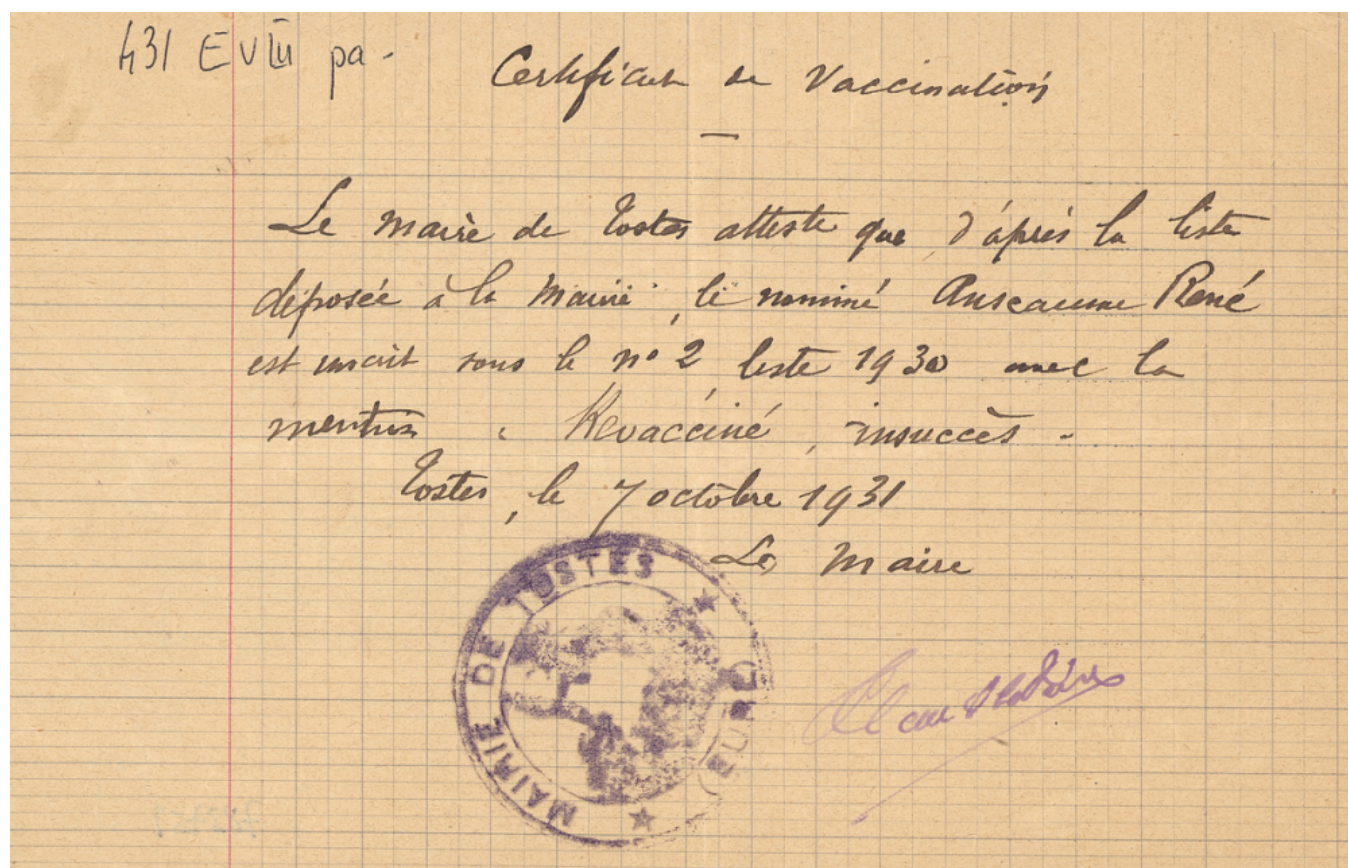 431 EVIII pa.
Certificat de Vaccination
Le maire de Tostes atteste que d'après la liste
déposée à la Mairie, le nommé Anseaume René
est inscrit sous le n° 2 liste 1930 avec la
mention : Revacciné, insuccès.
Tostes, le 7 octobre 1931
Le Maire
MAIRIE DE TOSTES
(EURE)